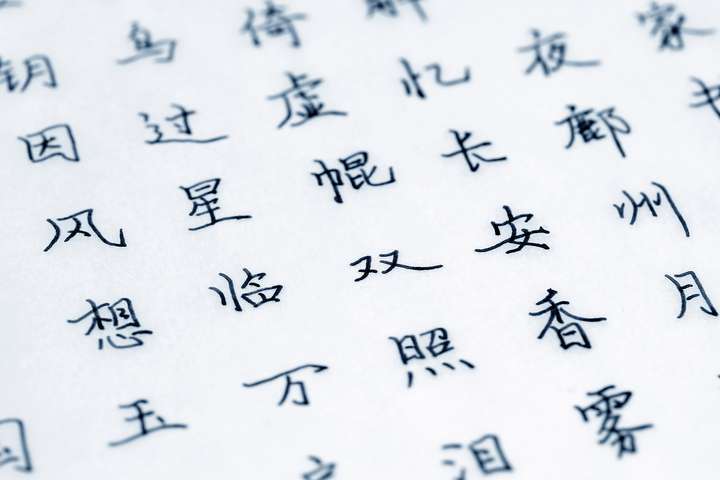 家书
夜鄜州月
解忆长安香雾
倚虚幌双照泪
鸟过星临万
钥因风想玉